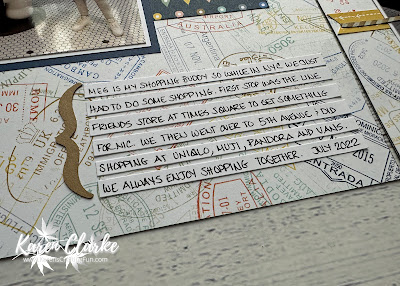 AUSTRALIA
MEG IS MY SHOPPING BUDDY SO WHILE IN NYC WE JUST
HAD TO DO SOME SHOPPING. FIRST STOP WAS THE LINE
FRIENDS STORE AT TIMES SQUARE TO GET SOMETHING
FOR NIC. WE THEN WENT OVER TO 5TH AVENUE & DID
SHOPPING AT UNIQLO, MUJI, PANDORA AND VANS.
WE ALWAYS ENJOY SHOPPING TOGETHER. JULY 2022
UK
2015
30050
Karen Clarke